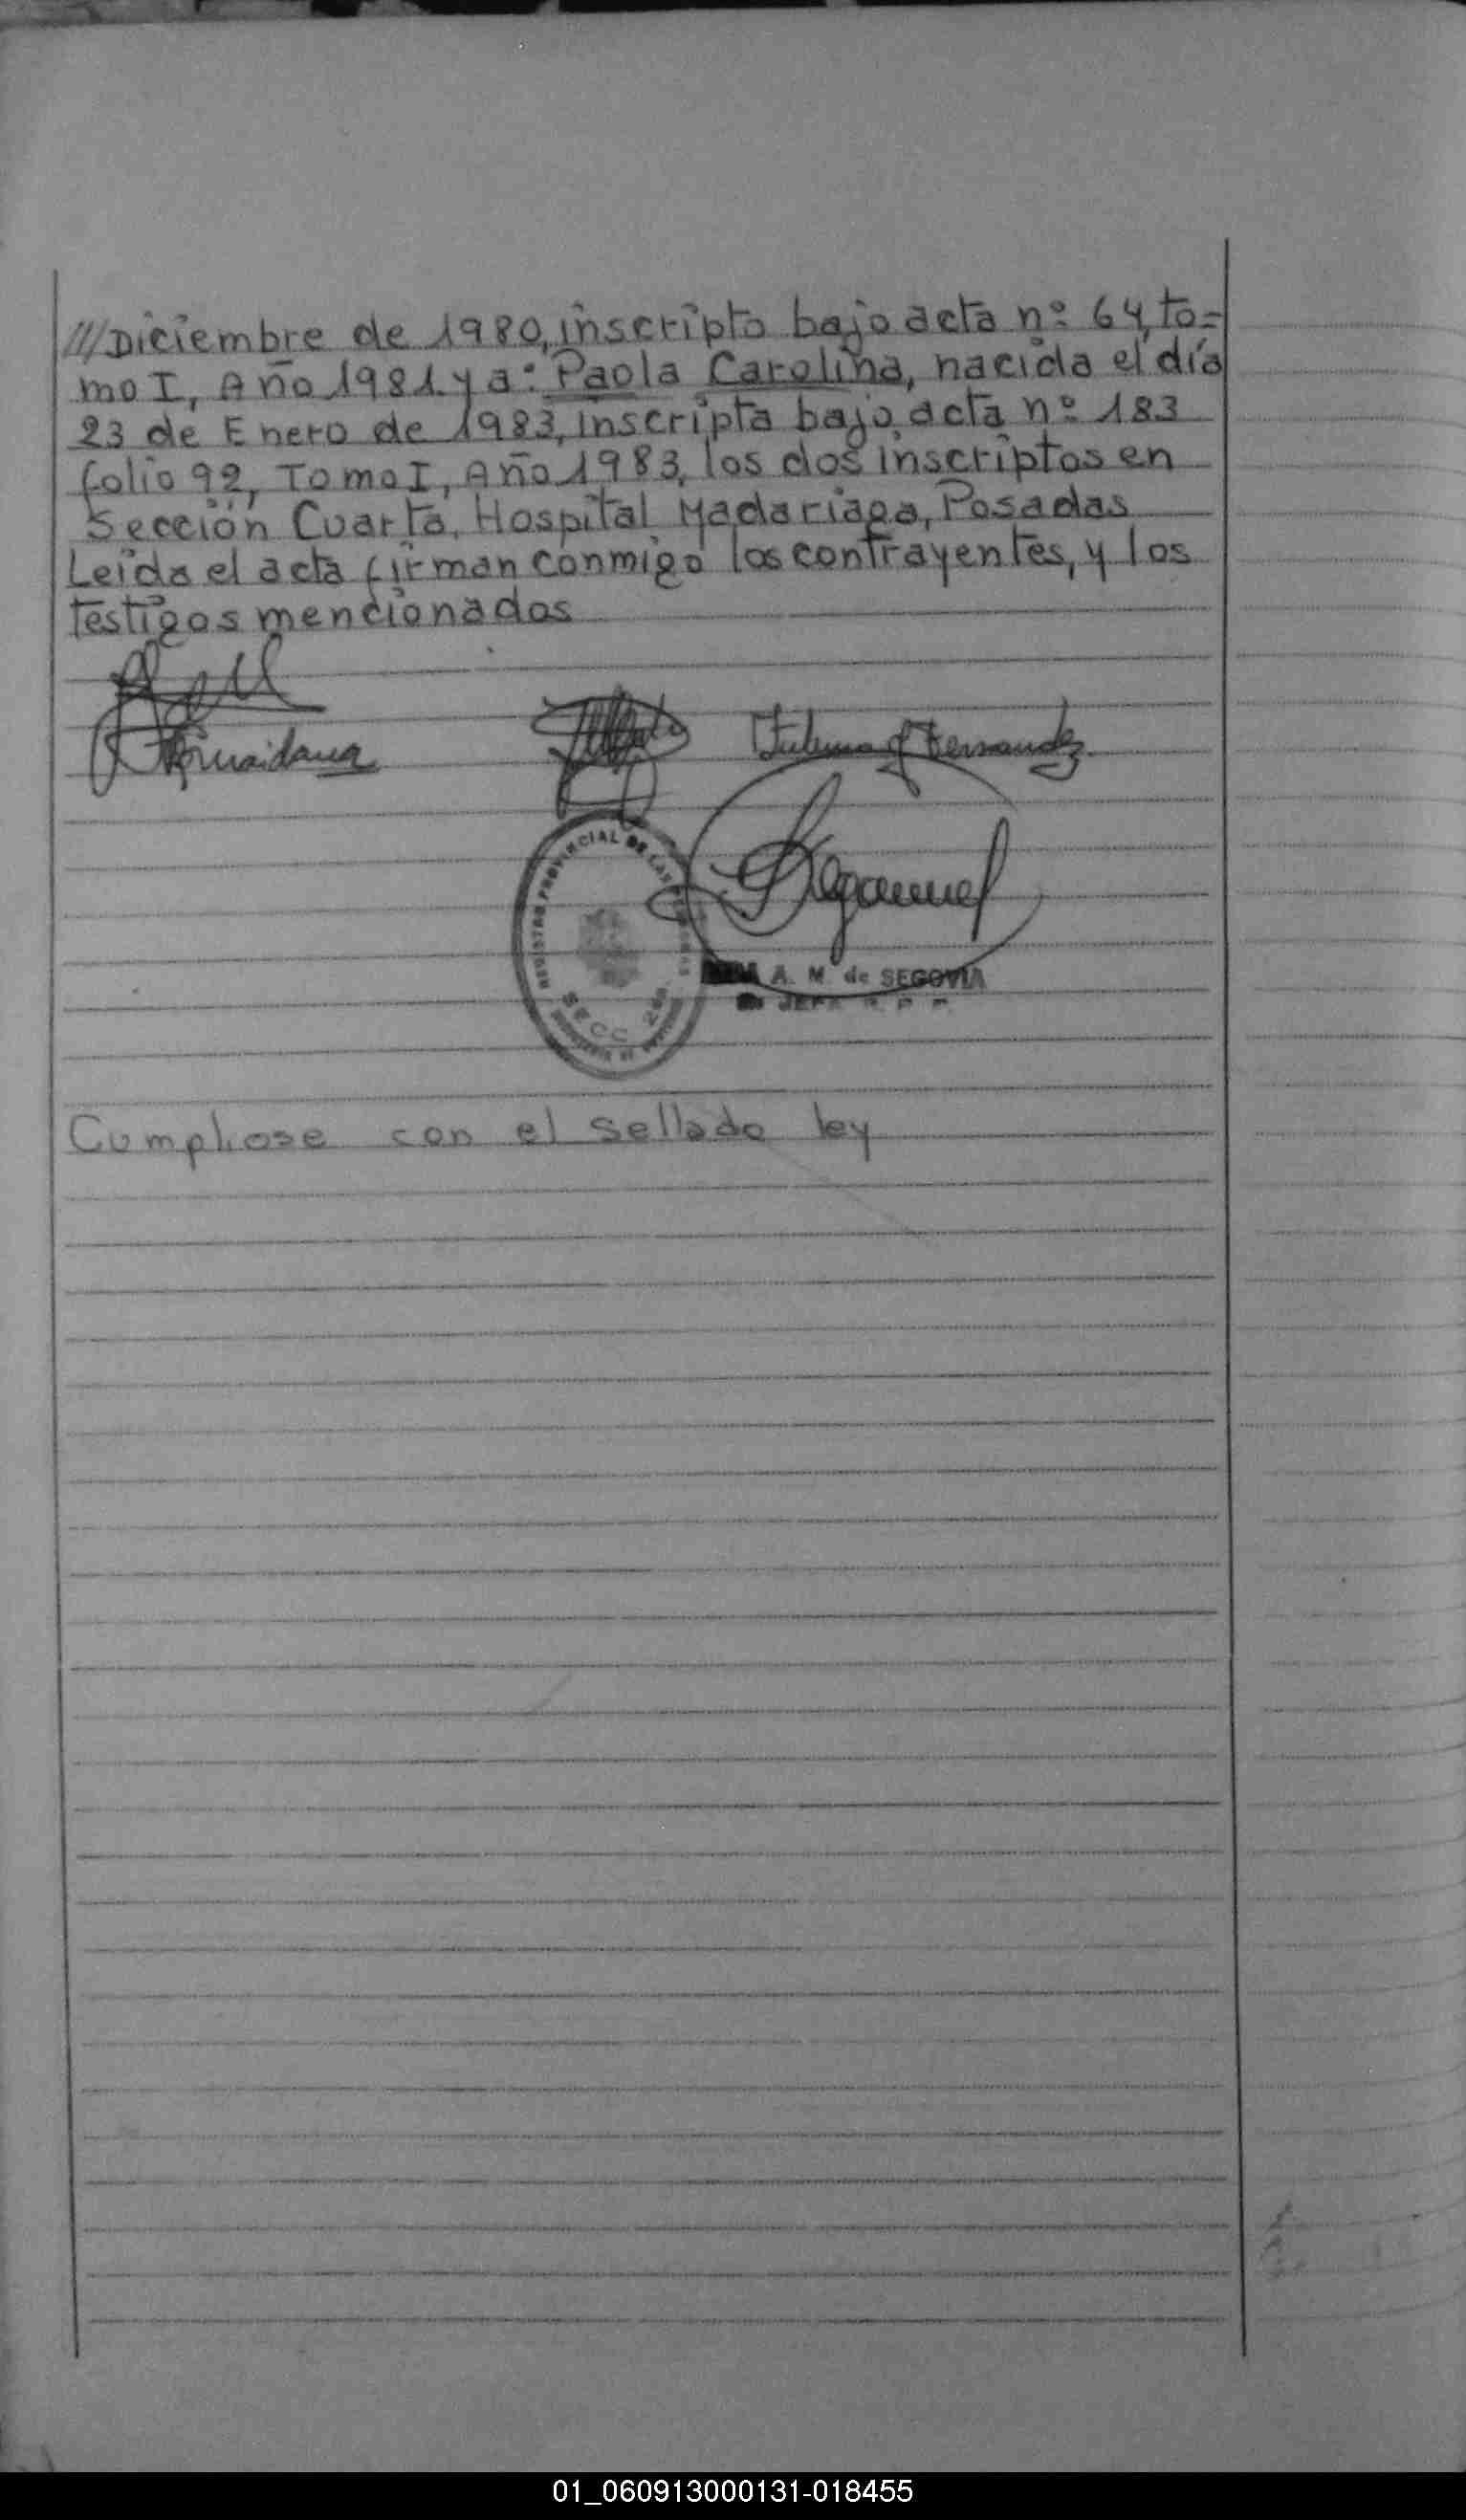 ///Diciembre de 1980, inscripto bajo acta nº 64, to=
mo I, Año 1981. y a: Paola Carolina, nacida el día
23 de Enero de 1983, inscripta bajo acta nº 183
folio 92, Tomo I, Año 1983, los dos inscriptos en
Sección Cuarta, Hospital Madariaga, Posadas
Leida el acta firman conmigo los contrayentes, y los
testigos mencionados
Fernandez
REGISTRO PROVINCIAL DE LAS
SECC
A. M. de SEGOVIA
JEFA R. P. P.
Cumpliose con el sellado ley
01_060913000131-018455